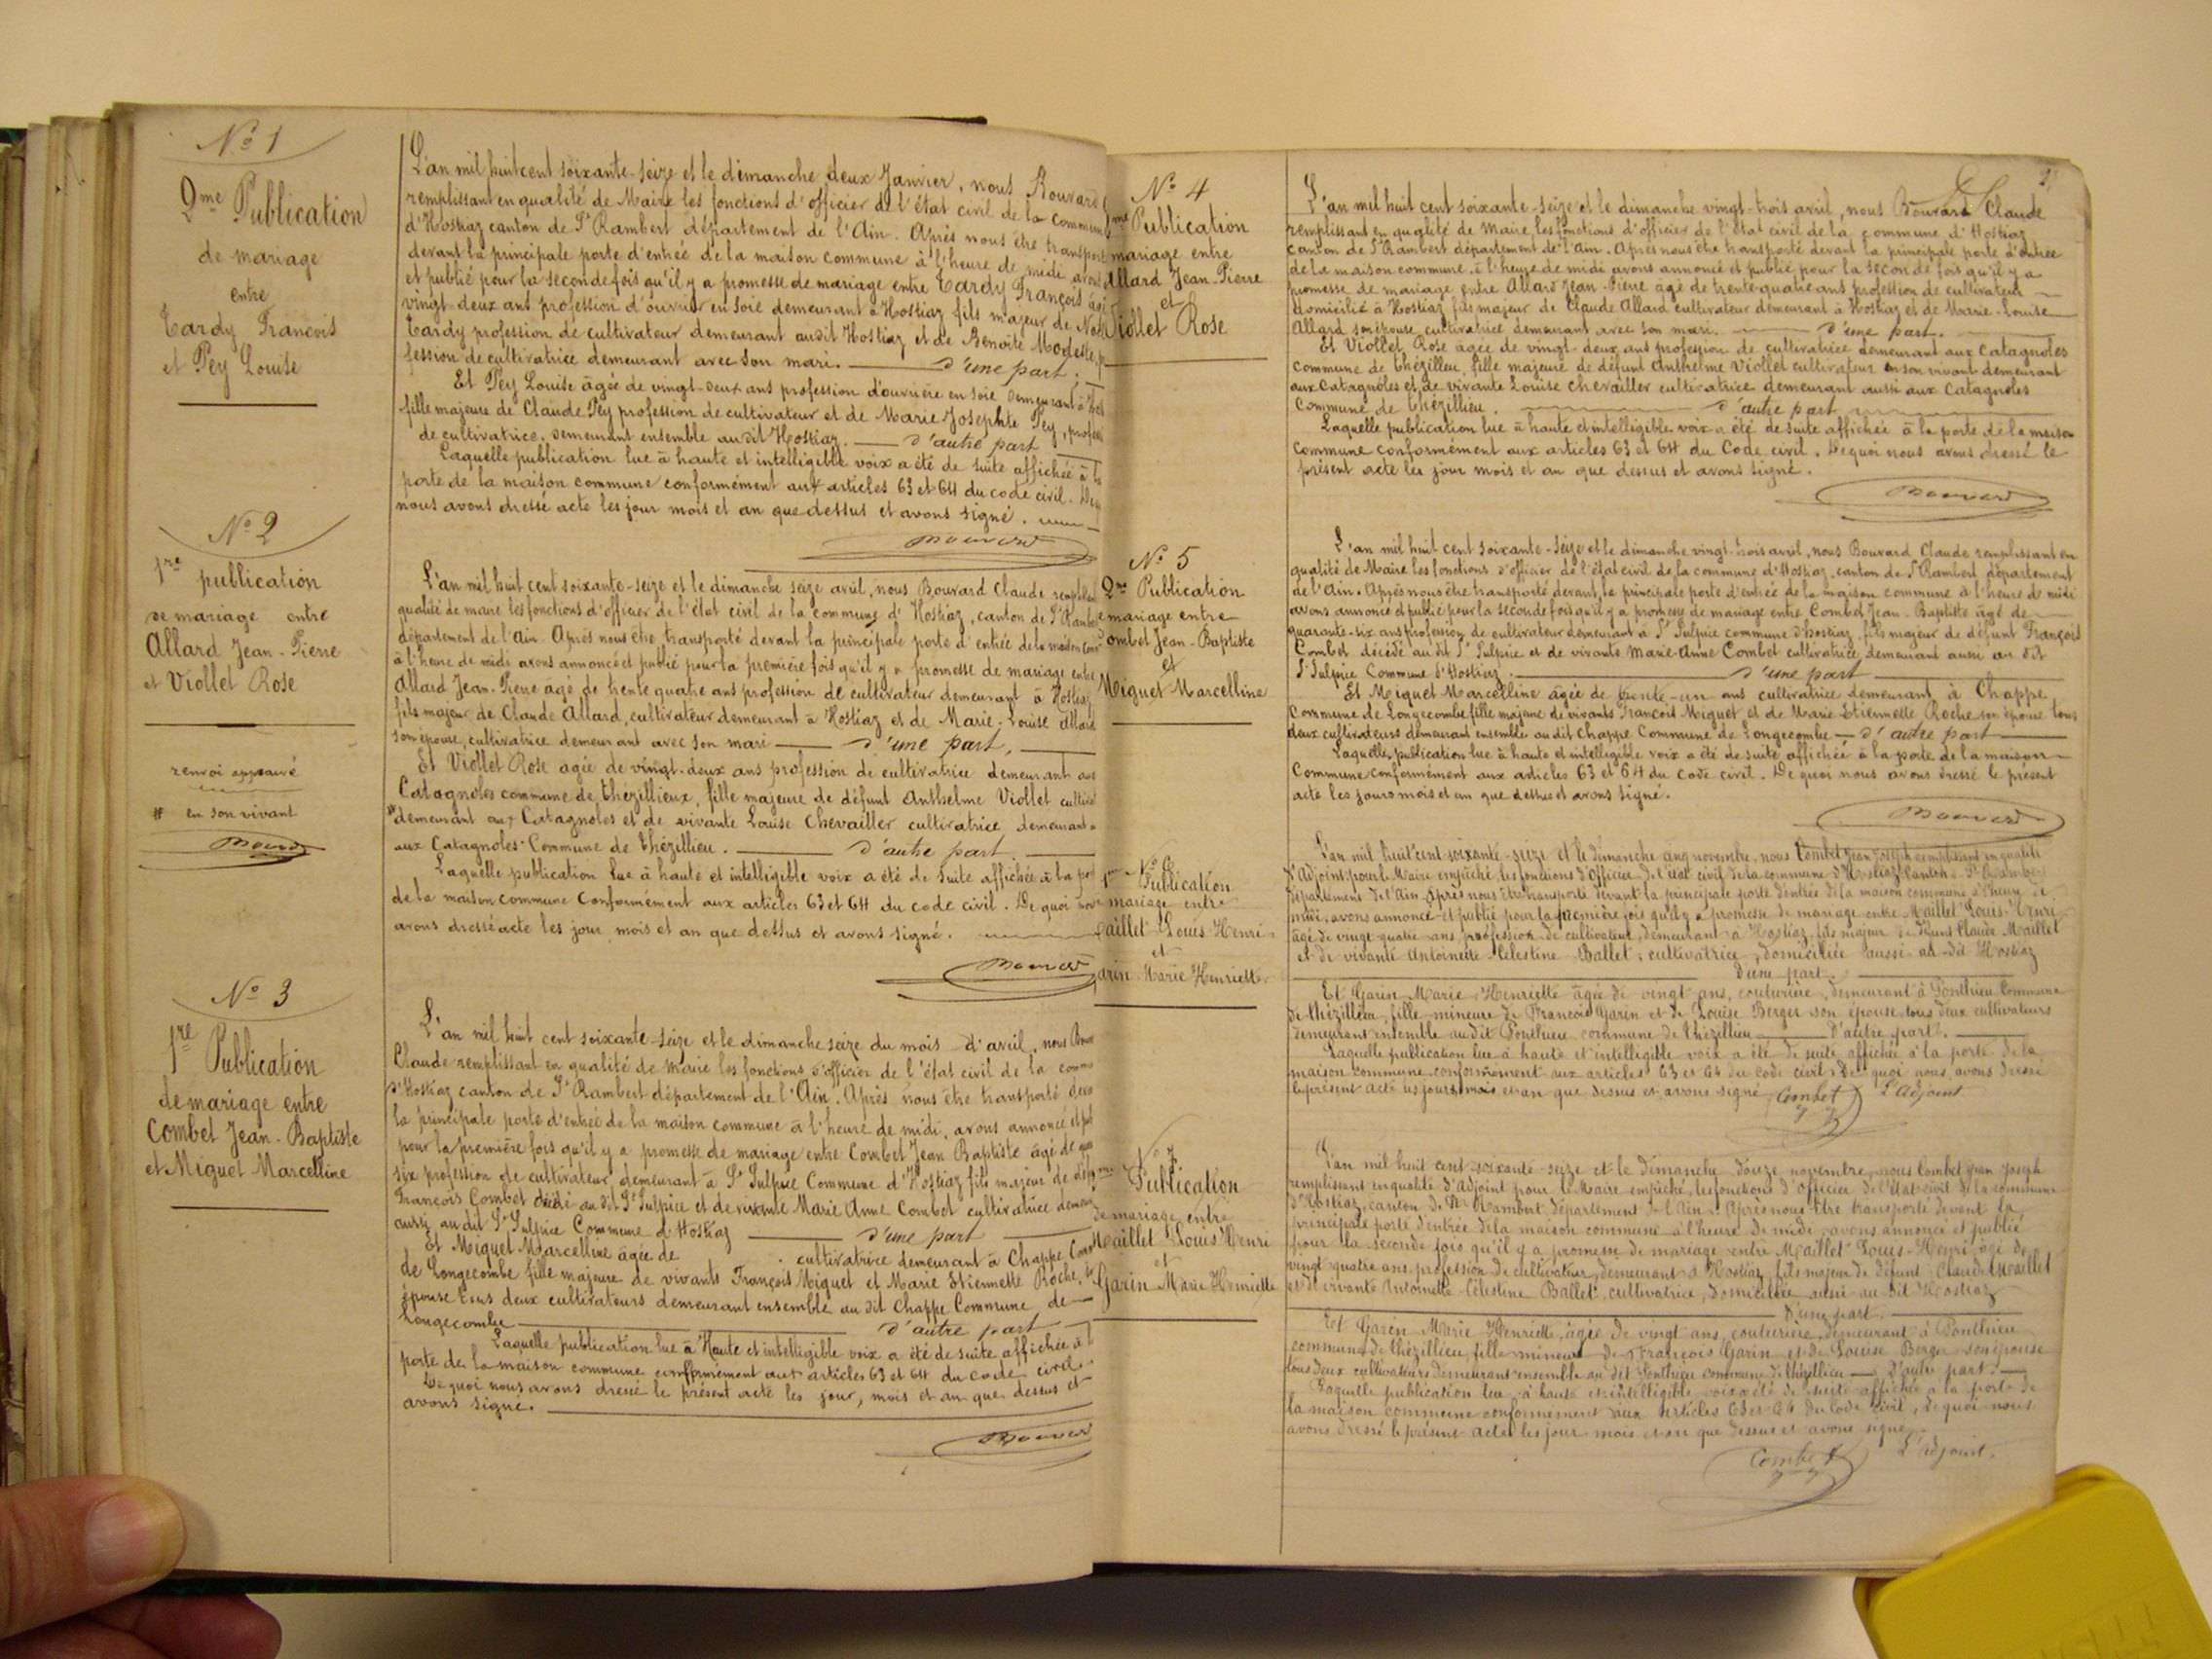 Nº 1
2me Publication
de mariage
entre
Tardy François
et Pey Louise
L'an mil huit cent soixante-seize et le dimanche deux Janvier, nous Bouvard
remplissant en qualité de Maire les fonctions d'officier de l'état civil de la commune
d'Hostiaz canton de St Rambert département de l'Ain. Après nous être transporté
devant la principale porte d'entrée de la maison commune à l'heure de midi avons
et publié pour la seconde fois qu'il y a promesse de mariage entre Tardy François âgé
vingt-deux ans profession d'ouvrier en soie demeurant à Hostiaz fils majeur de
Tardy profession de cultivateur demeurant audit Hostiaz et de Benoite Modeste,
fession de cultivatrice demeurant avec son mari. — d'une part.
Et Pey Louise âgée de vingt-deux ans profession d'ouvrière en soie demeurant à
fille majeure de Claude Pey profession de cultivateur et de Marie Josephte Pey,
de cultivatrice, demeurant ensemble au dit Hostiaz. — d'autre part
Laquelle publication lue à haute et intelligible voix a été de suite affichée à la
porte de la maison commune conformément aux articles 63 et 64 du code civil.
nous avons dressé acte les jour mois et an que dessus et avons signé.
Bouvard
Nº 2
1re publication
de mariage entre
Allard Jean-Pierre
et Viollet Rose
renvoi approuvé
# en son vivant
Bouvard
L'an mil huit cent soixante-seize et le dimanche seize avril, nous Bouvard Claude
qualité de maire les fonctions d'officier de l'état civil de la commune d'Hostiaz, canton de St
département de l'Ain. Après nous être transporté devant la principale porte d'entrée de la maison
à l'heure de midi avons annoncé et publié pour la première fois qu'il y a promesse de mariage entre
Allard Jean-Pierre âgé de trente quatre ans profession de cultivateur demeurant à Hostiaz
fils majeur de Claude Allard, cultivateur demeurant à Hostiaz et de Marie-Louise Allard
son épouse, cultivatrice demeurant avec son mari — d'une part,
Et Viollet Rose agée de vingt-deux ans profession de cultivatrice demeurant aux
Catagnoles commune de Thézillieux, fille majeure de défunt Anthselme Viollet
# demeurant aux Catagnoles et de vivante Louise Chevailler cultivatrice demeurant
aux Catagnoles Commune de Thézillieu. — d'autre part
Laquelle publication lue à haute et intelligible voix a été de suite affichée à la
de la maison commune Conformément aux articles 63 et 64 du code civil. De quoi nous
avons dressé acte les jour mois et an que dessus et avons signé.
Bouvard
Nº 3
1re Publication
de mariage entre
Combet Jean-Baptiste
et Miguet Marcelline
L'an mil huit cent soixante-seize et le dimanche seize du mois d'avril, nous
Claude remplissant en qualité de Maire les fonctions d'officier de l'état civil de la
d'Hostiaz canton de St Rambert département de l'Ain. Après nous être transporté
la principale porte d'entrée de la maison commune à l'heure de midi, avons annoncé et
pour la première fois qu'il y a promesse de mariage entre Combet Jean Baptiste âgé de
six profession de cultivateur, demeurant à St Sulpice Commune d'Hostiaz fils majeur de
François Combet décédé au dit St Sulpice et de vivante Marie Anne Combet cultivatrice
aussi au dit St Sulpice Commune d'Hostiaz — d'une part
Et Miguet Marcelline âgée de cultivatrice demeurant à Chappe
de Longecombe fille majeure de vivants François Miguet et Marie Etiennette Roche,
épouse tous deux cultivateurs demeurant ensemble au dit Chappe Commune de
Longecombe — d'autre part
Laquelle publication lue à Haute et intelligible voix a été de suite affichée à
porte de la maison commune conformément aux articles 63 et 64 du code civil.
De quoi nous avons dressé le présent acte les jour, mois et an que dessus et
avons signé.
Bouvard
Nº 4
Publication
mariage entre
Allard Jean-Pierre
et
Viollet Rose
L'an mil huit cent soixante-seize et le dimanche vingt-trois avril, nous Bouvard Claude
remplissant en qualité de Maire les fonctions d'officier de l'état civil de la commune d'Hostiaz
canton de St Rambert département de l'Ain. Après nous être transporté devant la principale porte d'entrée
de la maison commune, à l'heure de midi avons annoncé et publié pour la seconde fois qu'il y a
promesse de mariage entre Allard Jean-Pierre âgé de trente-quatre ans profession de cultivateur
domicilié à Hostiaz fils majeur de Claude Allard cultivateur demeurant à Hostiaz et de Marie-Louise
Allard son épouse, cultivatrice demeurant avec son mari. — d'une part.
Et Viollet Rose âgée de vingt-deux ans profession de cultivatrice demeurant aux Catagnoles
commune de Thézillieu, fille majeure de défunt Anthelme Viollet cultivateur en son vivant demeurant
aux Catagnoles et de vivante Louise Chevailler cultivatrice demeurant aussi aux Catagnoles
Commune de Thézillieu. — d'autre part
Laquelle publication lue à haute et intelligible voix a été de suite affichée à la porte de la maison
commune conformément aux articles 63 et 64 du Code civil. De quoi nous avons dressé le
présent acte les jour mois et an que dessus et avons signé.
Bouvard
Nº 5
2me Publication
mariage entre
Combet Jean-Baptiste
et
Miguet Marcelline
L'an mil huit cent soixante-seize et le dimanche vingt-trois avril, nous Bouvard Claude remplissant en
qualité de Maire les fonctions d'officier de l'état civil de la commune d'Hostiaz, canton de St Rambert département
de l'Ain. Après nous être transporté devant la principale porte d'entrée de la maison commune à l'heure de midi
avons annoncé et publié pour la seconde fois qu'il y a promesse de mariage entre Combet Jean-Baptiste âgé de
quarante-six ans profession de cultivateur demeurant à St Sulpice commune d'hostiaz, fils majeur de défunt François
Combet décédé au dit St Sulpice et de vivante Marie-Anne Combet cultivatrice demeurant aussi au dit
St Sulpice Commune d'Hostiaz. — d'une part
Et Miguet Marcelline âgée de trente-un ans cultivatrice demeurant à Chappe
Commune de Longecombe fille majeure de vivants François Miguet et de Marie Etiennette Roche son épouse tous
deux cultivateurs demeurant ensemble au dit Chappe Commune de Longecombe — d'autre part
Laquelle publication lue à haute et intelligible voix a été de suite affichée à la porte de la maison
Commune conformément aux articles 63 et 64 du Code civil. De quoi nous avons dressé le présent
acte les jours mois et an que dessus et avons signé.
Bouvard
Nº 6
Publication
mariage entre
Maillet Louis Henri
et
Garin Marie Henriette
L'an mil huit cent soixante-seize et le dimanche cinq novembre, nous Combet Jean Joseph remplissant en qualité
d'Adjoint pour le Maire empêché les fonctions d'Officier de l'état civil de la commune d'Hostiaz canton de St Rambert
département de l'Ain. Après nous être transporté devant la principale porte d'entrée de la maison commune à l'heure de
midi, avons annoncé et publié pour la première fois qu'il y a promesse de mariage entre Maillet Louis-Henri
âgé de vingt quatre ans, profession de cultivateur, demeurant à Hostiaz, fils majeur de défunt Claude Maillet
et de vivante Antoinette-Célestine Ballet, cultivatrice, domiciliée aussi au-dit Hostiaz
d'une part.
Et Garin Marie-Henriette âgée de vingt ans, couturière, demeurant à Ponthieu Commune
de Thézillieu, fille mineure de François Garin et de Louise Berger son épouse, tous deux cultivateurs
demeurant ensemble audit Ponthieu commune de Thézillieu — d'autre part.
Laquelle publication lue à haute et intelligible voix a été de suite affichée à la porte de la
maison commune conformément aux articles 63 et 64 du Code civil. De quoi nous avons dressé
le présent acte les jours, mois et an que dessus et avons signé Combet L'Adjoint
Nº 7
Publication
de mariage entre
Maillet Louis Henri
et
Garin Marie Henriette
L'an mil huit cent soixante-seize et le dimanche douze novembre, nous Combet Jean Joseph
remplissant en qualité d'Adjoint pour le Maire empêché, les fonctions d'Officier de l'état civil de la commune
d'Hostiaz, canton de St Rambert département de l'Ain. Après nous être transporté devant la
principale porte d'entrée de la maison commune à l'heure de midi, avons annoncé et publié
pour la seconde fois qu'il y a promesse de mariage entre Maillet Louis-Henri âgé de
vingt quatre ans, profession de cultivateur, demeurant à Hostiaz, fils majeur de défunt Claude Maillet
et de vivante Antoinette-Célestine Ballet, cultivatrice, domiciliée aussi au dit Hostiaz
d'une part.
Et Garin Marie Henriette, âgée de vingt ans, couturière, demeurant à Ponthieu
commune de Thézillieu, fille mineure de François Garin et de Louise Berger son épouse
tous deux cultivateurs demeurant ensemble au dit Ponthieu commune de Thézillieu — d'autre part.
Laquelle publication lue à haute et intelligible voix a été de suite affichée à la porte de
la maison commune conformément aux articles 63 et 64 du Code civil, de quoi nous
avons dressé le présent acte les jour mois et an que dessus et avons signé
Combet L'Adjoint.